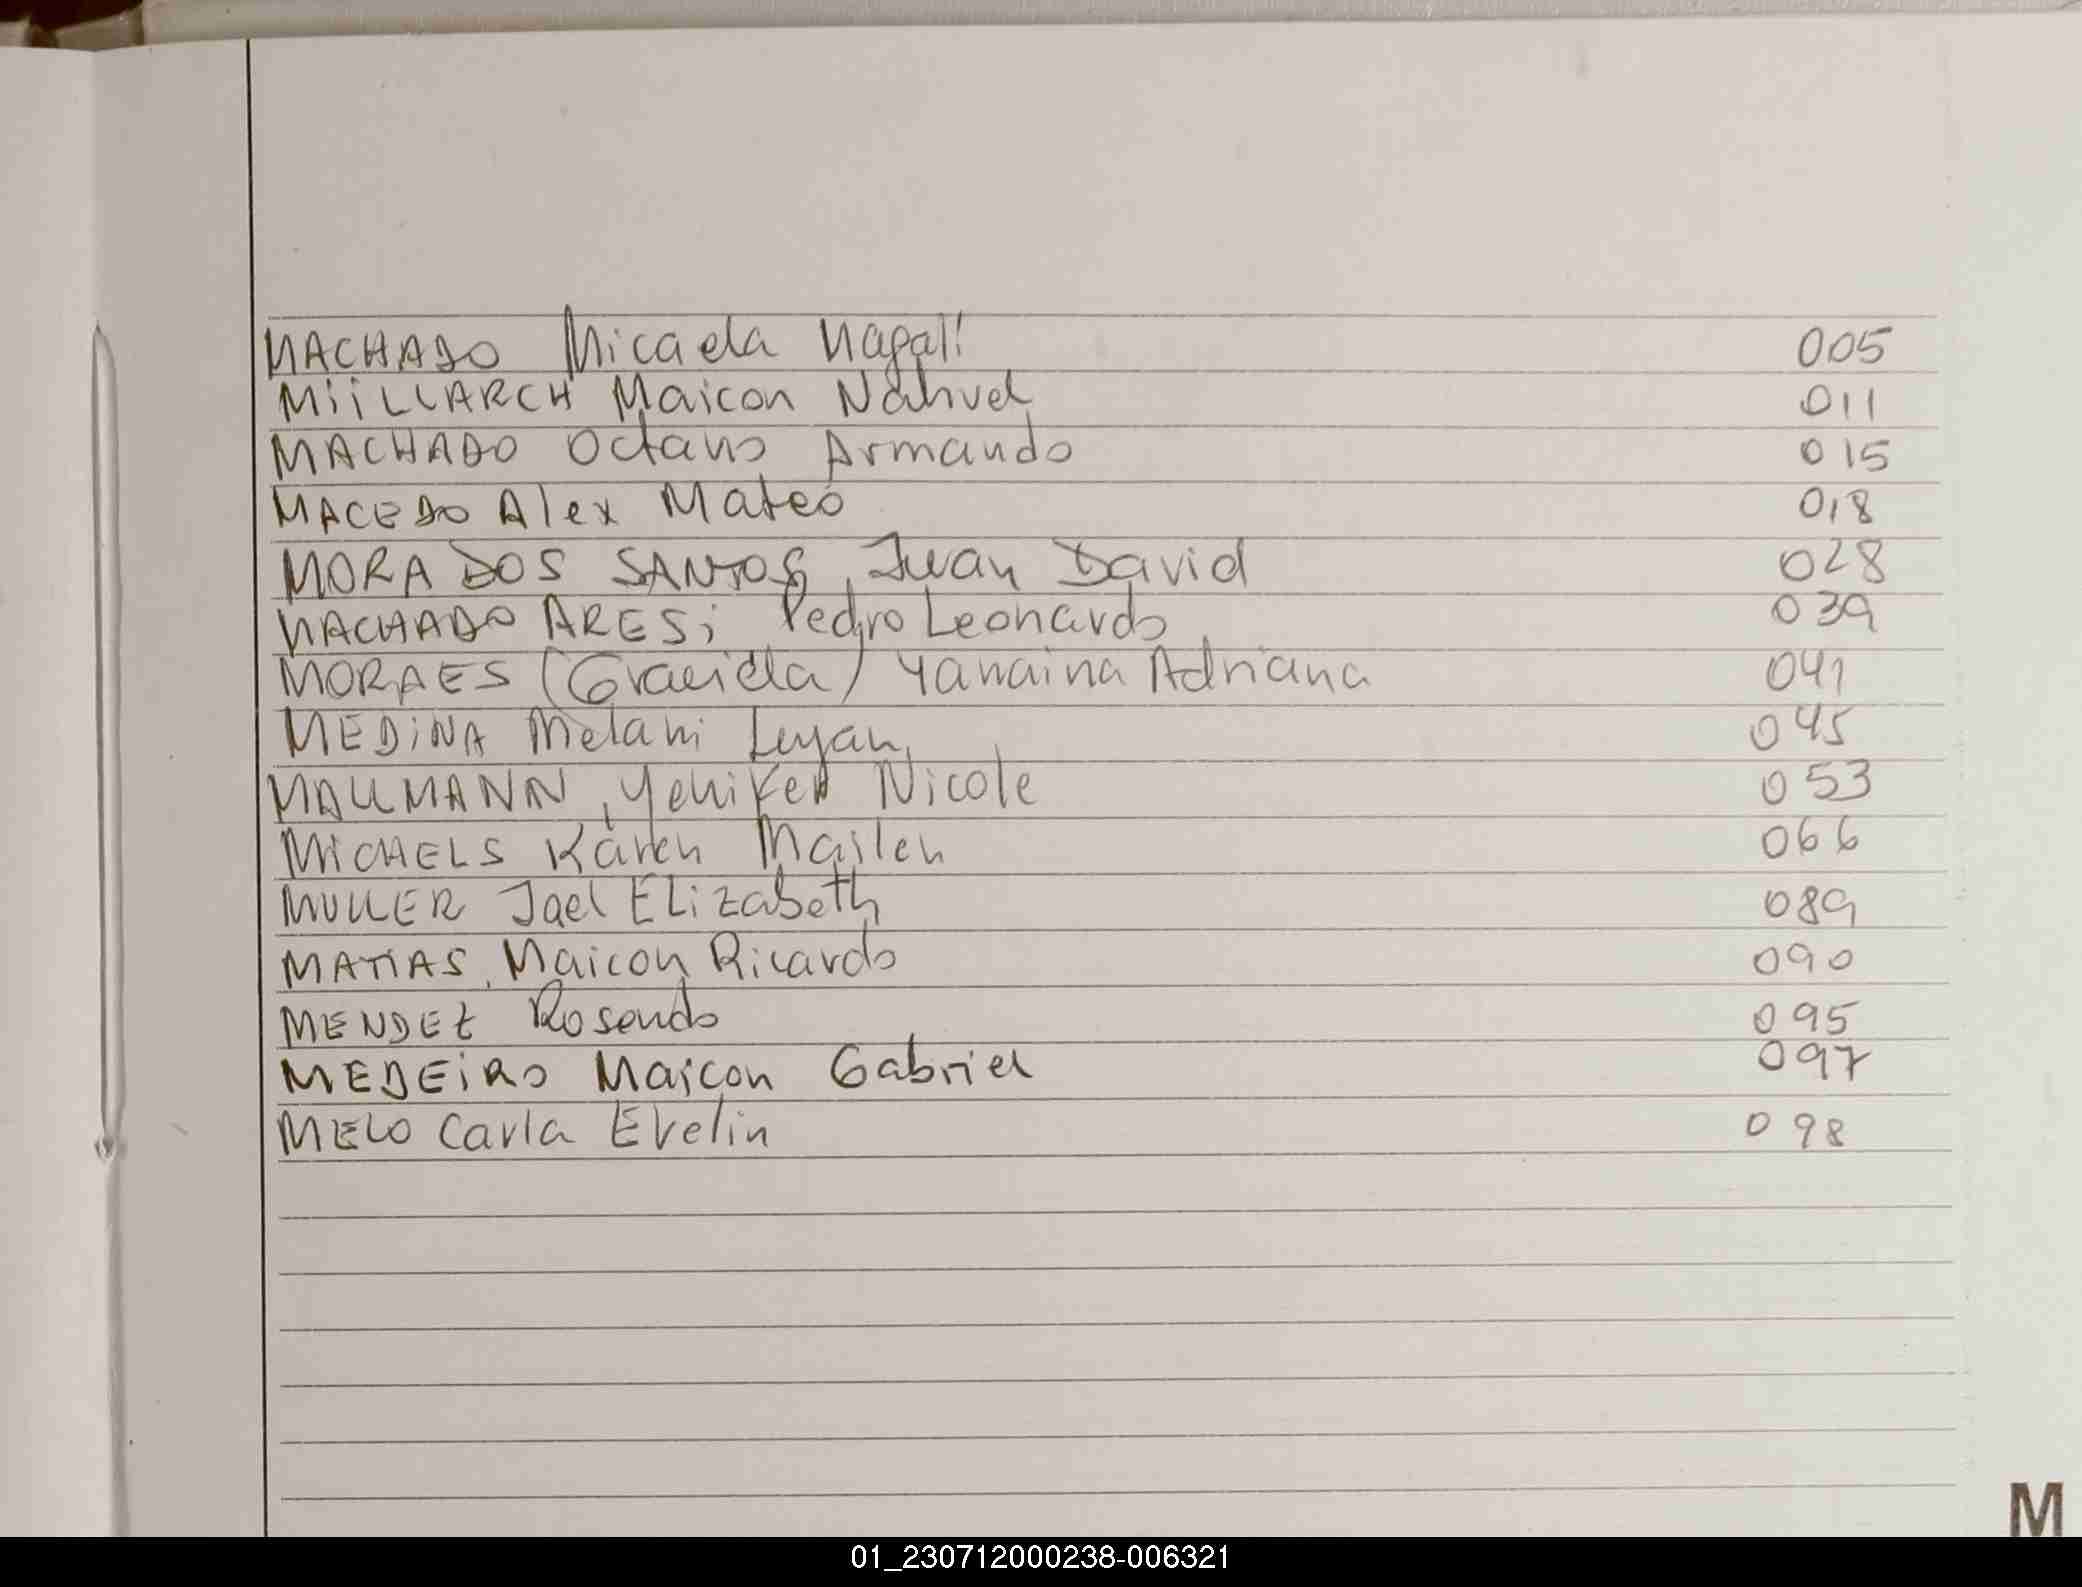 MACHADO Micaela Magalí 005
MiiLLARCH Maicon Nahuel 011
MACHADO Octavio Armando 015
MACEDO Alex Mateo 018
MORA DOS SANTOS, Juan David 028
MACHADO ARESi Pedro Leonardo 039
MORAES (Graciela) Yanaina Adriana 041
MEDiNA Melani Luyan 045
MALLMANN, Yenifer Nicole 053
MICHAELS Karen Mailen 066
MULLER Jael ELizabeth 089
MATIAS, Maicon Ricardo 090
MENDEZ Rosendo 095
MEDEiRO Maicon Gabriel 097
MELO Carla Evelin 098
M
01_230712000238-006321